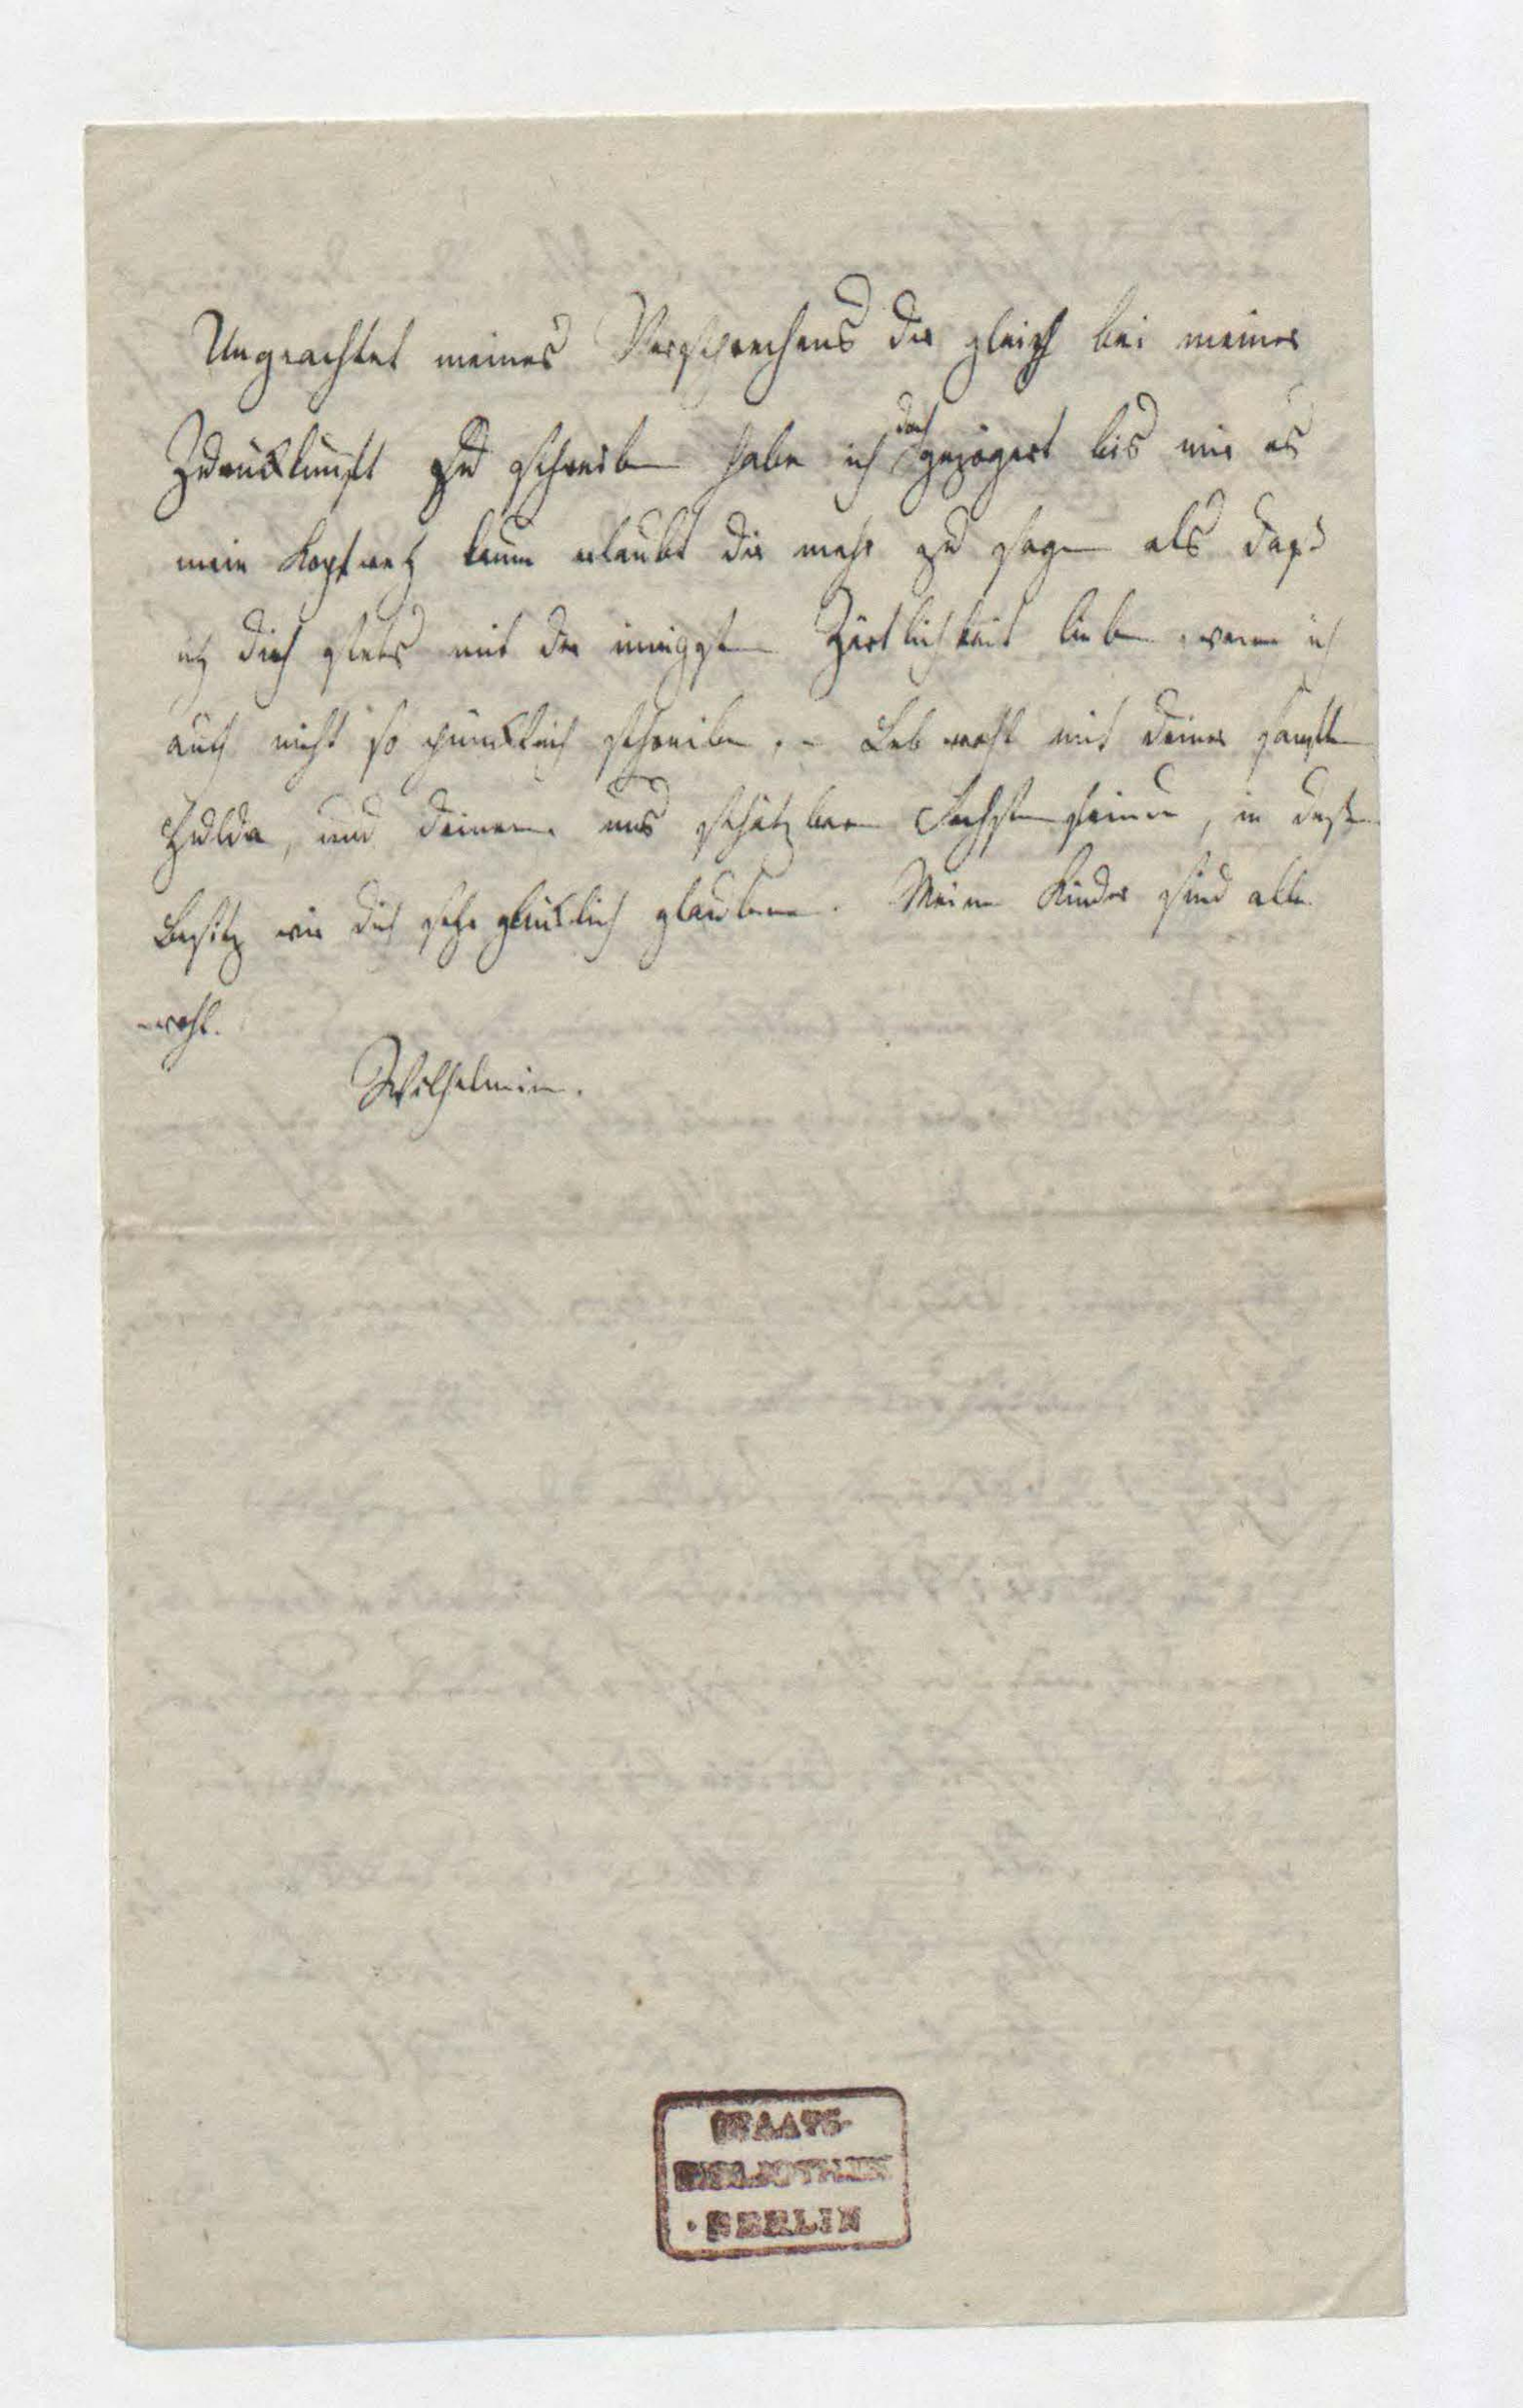 Ungeachtet meines Versprechens dir gleich bei meiner
Zurükkunft zu schreiben habe ich doch gezögert bis mir es
mein Kopfweh kaum erlaubt dir mehr zu sagen als daß
ich dich stets mit der innigsten Zärtlichkeit liebe wenn ich
auch nicht so pünktlich schreibe. – Leb wohl mit deiner sanften
Hulda, und deinem uns schätzbaren, in deßen
Besitz wir dich sehr glüklich glauben. Meine Kinder sind alle
wohl.
Wilhelmine.
STAATS-
BIBLIOTHEK
• BERLIN